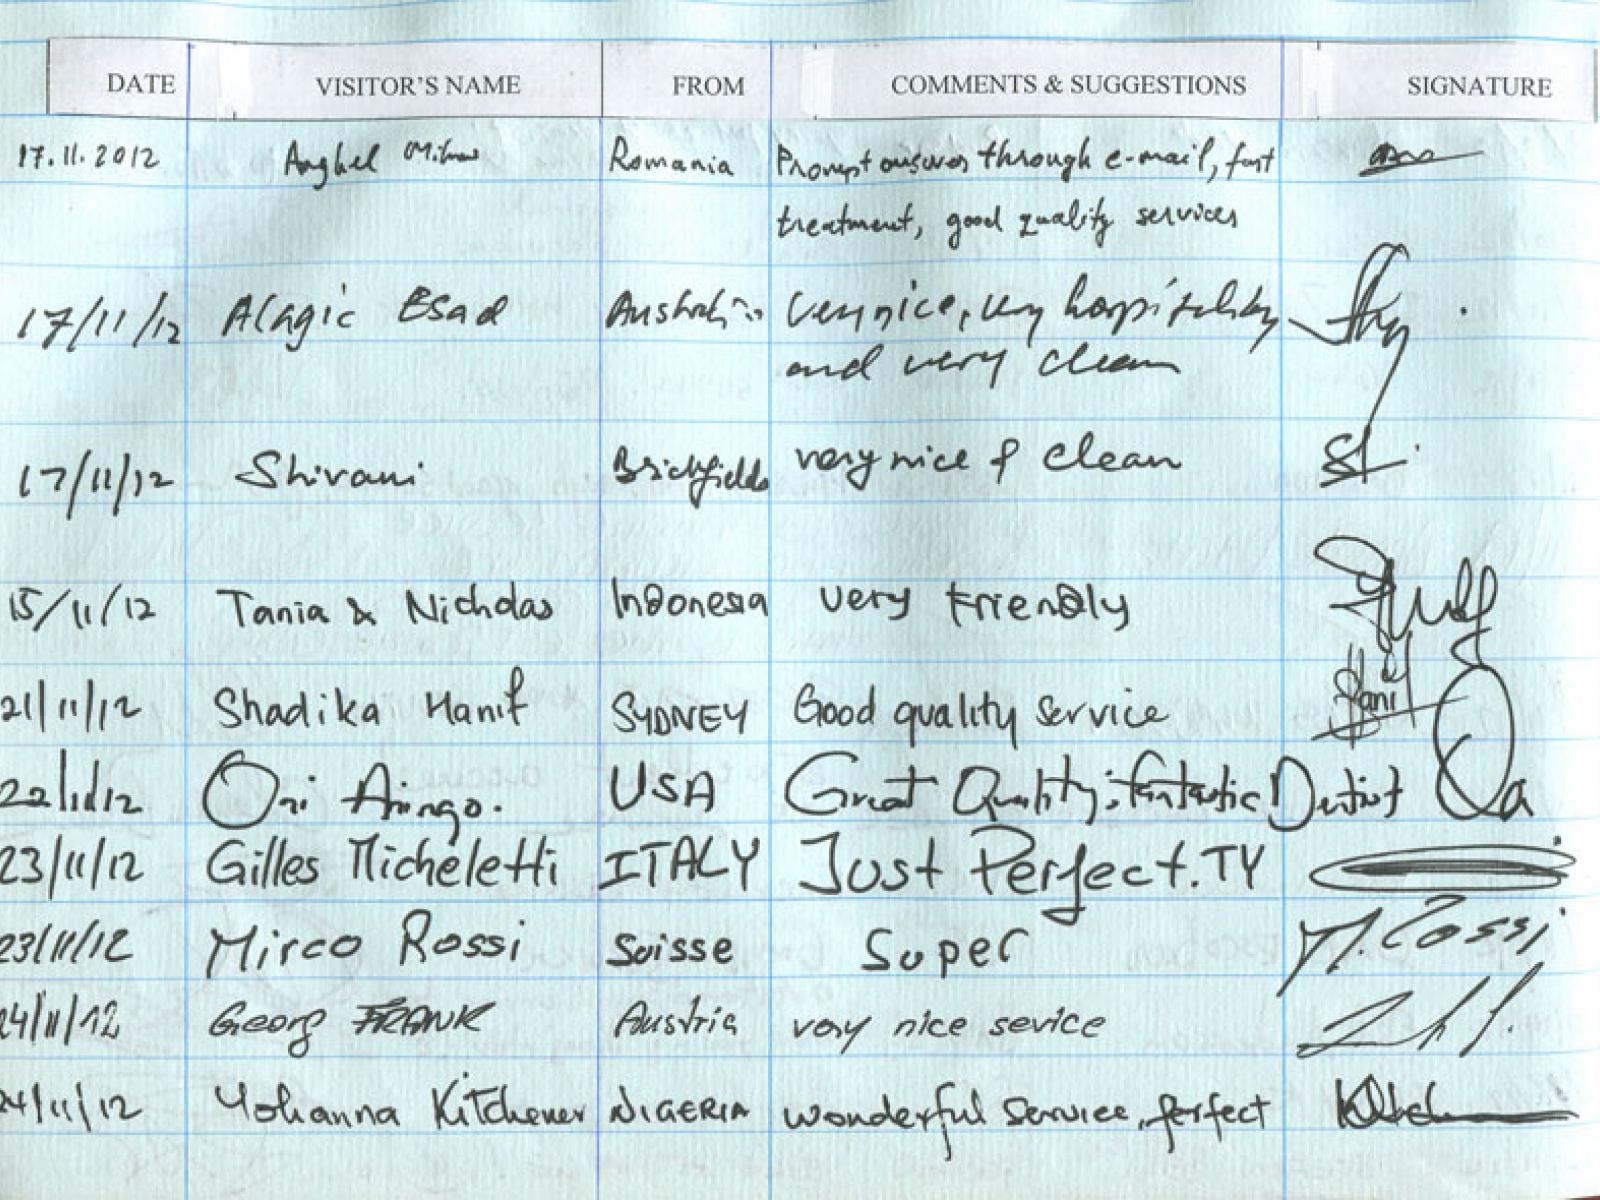 DATE VISITOR'S NAME FROM COMMENTS & SUGGESTIONS SIGNATURE
17.11.2012 Anghel Romania Prompt answers through e-mail, fast
treatment, good quality services
17/11/12 Alagic Esad Australia Very nice, very hospitality
and very clean
17/11/12 Shivani Brickfields very nice & clean
15/11/12 Tania & Nicholas Indonesia very Friendly
21/11/12 Shadika Hanif SYDNEY Good quality service
22/11/12 Ori Aringo. USA Great Quality; fantastic Dentist
23/11/12 Gilles Micheletti ITALY Just Perfect. TY
23/11/12 Mirco Rossi Suisse Super M. Rossi
24/11/12 Georg FRANK Austria very nice sevice
24/11/12 Yohanna Kitchener NIGERIA wonderful service, perfect